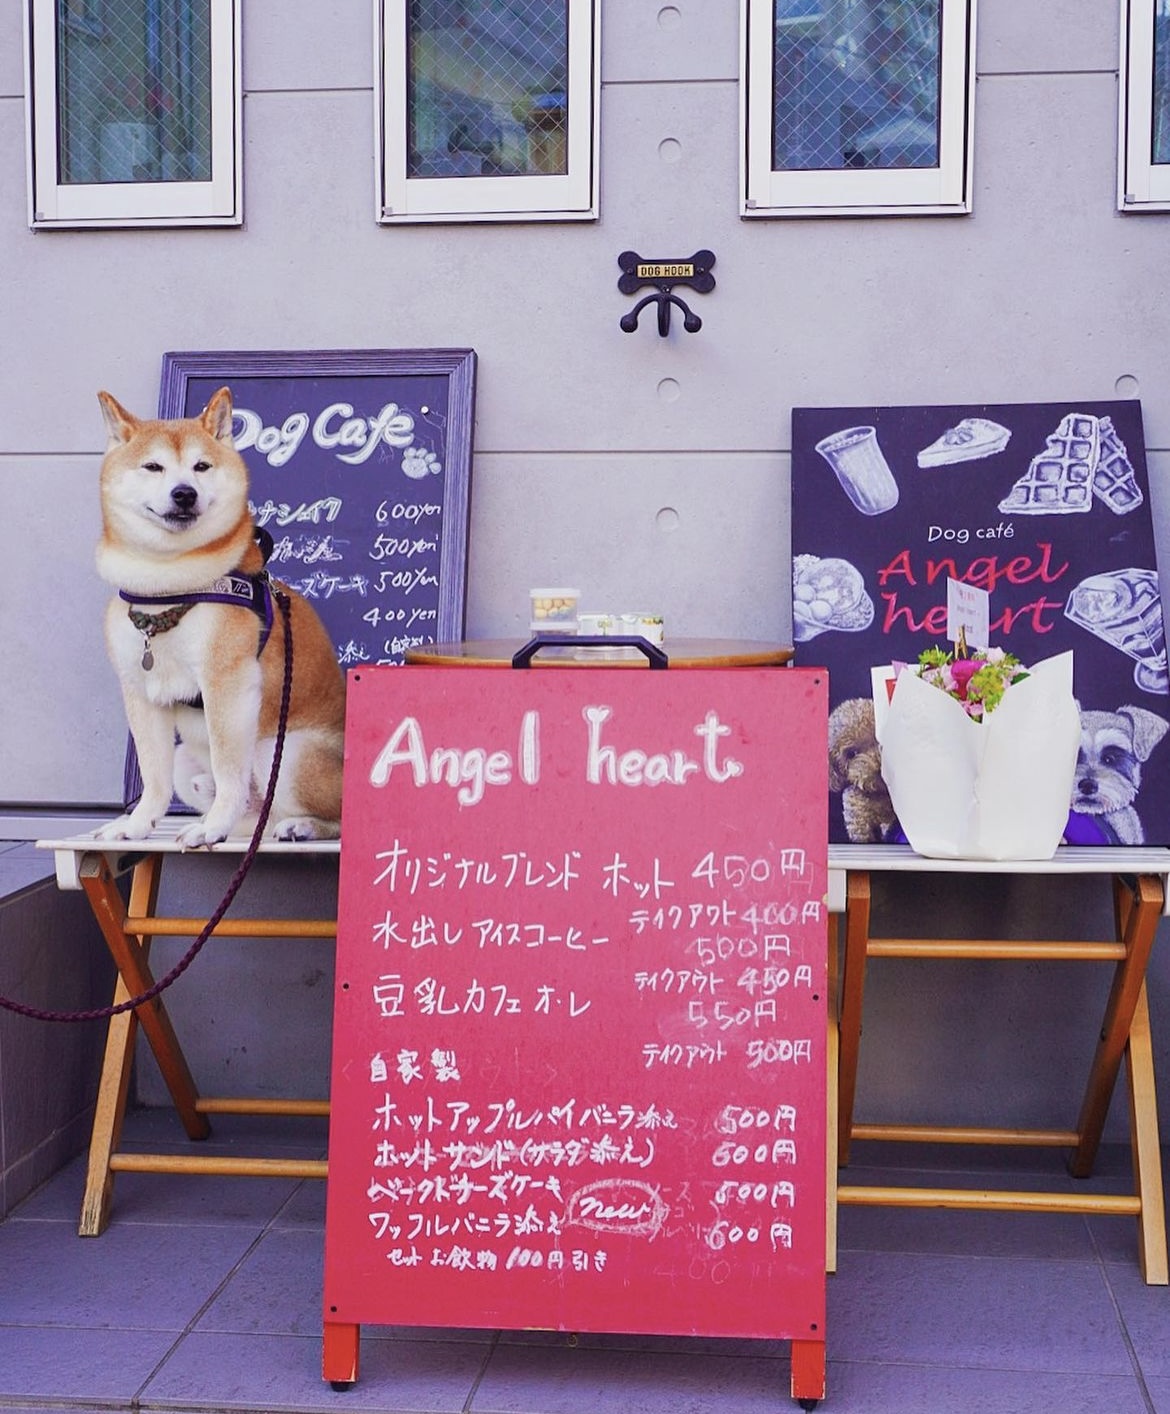 DOG HOOK
Dog Cafe
ナシェイク 600yen
500yen
ーズケーキ 500yen
400yen
添え (自家製)
Dog café
Angel
heart
Angel heart
オリジナルブレンド ホット 450円
テイクアウト 400円
水出しアイスコーヒー 500円
テイクアウト 450円
豆乳カフェオ・レ 550円
テイクアウト 500円
自家製
ホットアップルパイバニラ添え 500円
ホットサンド(サラダ添え) 600円
ベークドチーズケーキ new 500円
ワッフルバニラ添え 600円
セットお飲物100円引き